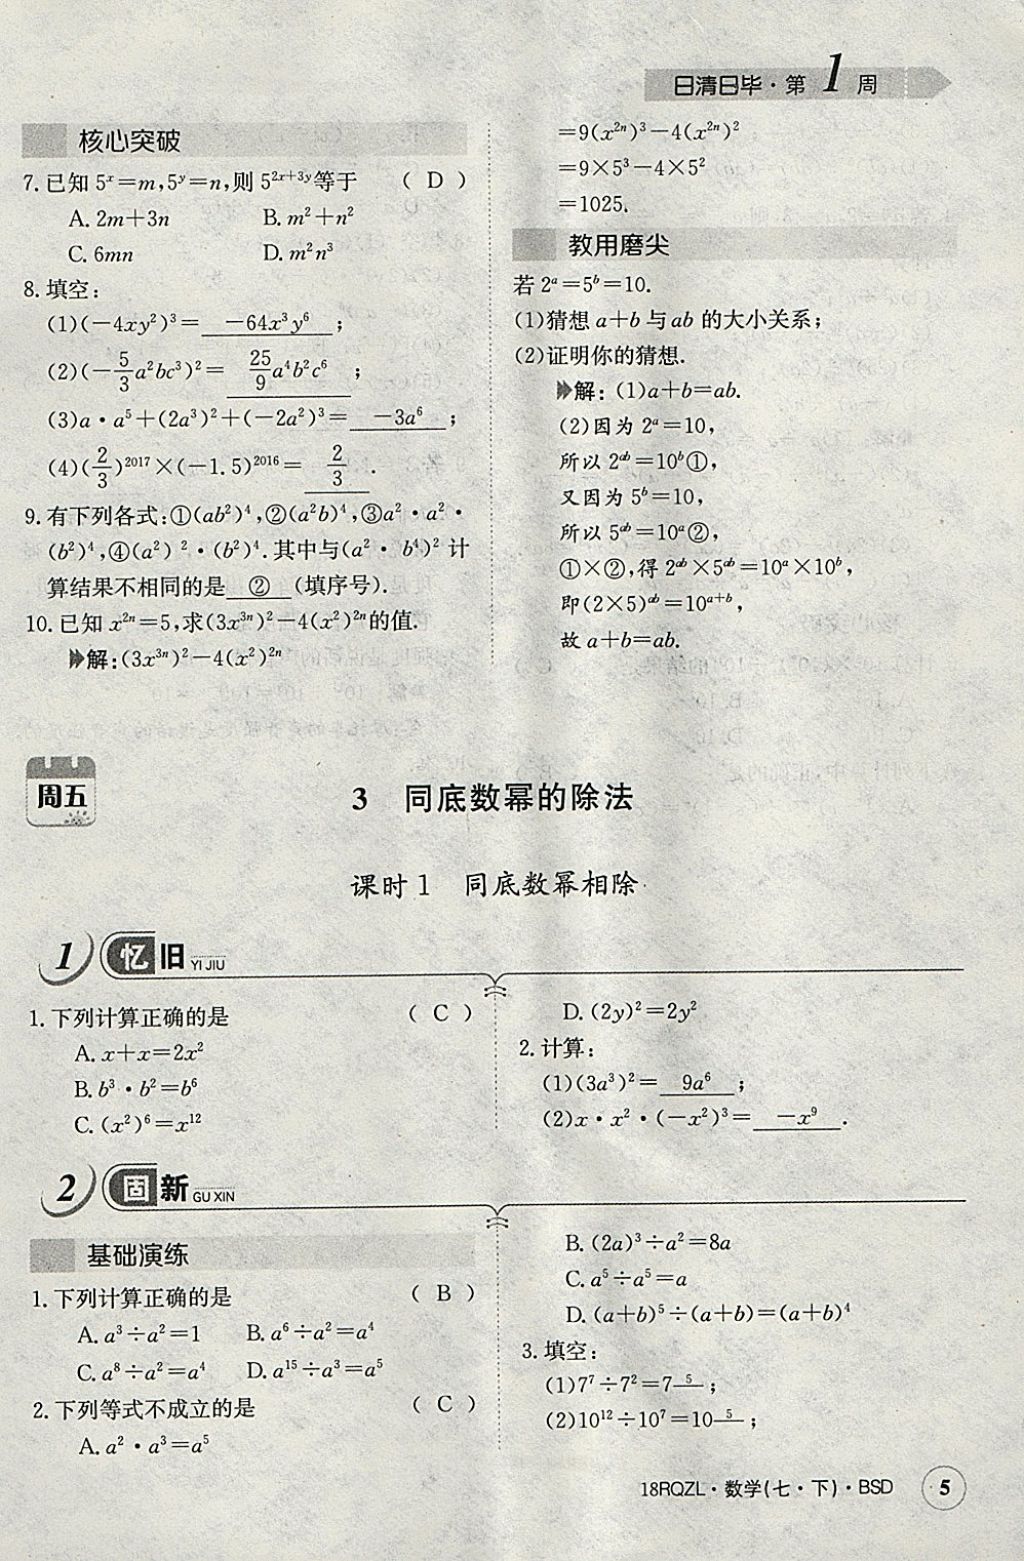 日清日毕·第1周
核心突破
7.已知5ˣ=m,5ʸ=n,则5²ˣ⁺³ʸ等于 ( D )
A. 2m+3n B. m²+n²
C. 6mn D. m²n³
8.填空:
(1)(-4xy²)³= -64x³y⁶ ;
(2)(-5/3a²bc³)²= 25/9a⁴b²c⁶ ;
(3)a·a⁵+(2a³)²+(-2a²)³= -3a⁶ ;
(4)(2/3)²⁰¹⁷×(-1.5)²⁰¹⁶= 2/3 .
9.有下列各式:①(ab²)⁴,②(a²b)⁴,③a²·a²·
(b²)⁴,④(a²)²·(b²)⁴.其中与(a²·b⁴)²计
算结果不相同的是 ② (填序号).
10.已知x²ⁿ=5,求(3x³ⁿ)²-4(x²)²ⁿ的值.
解:(3x³ⁿ)²-4(x²)²ⁿ
=9(x²ⁿ)³-4(x²ⁿ)²
=9×5³-4×5²
=1025.
教用磨尖
若2ᵃ=5ᵇ=10.
(1)猜想a+b与ab的大小关系;
(2)证明你的猜想.
解:(1)a+b=ab.
(2)因为2ᵃ=10,
所以2ᵃᵇ=10ᵇ①,
又因为5ᵇ=10,
所以5ᵃᵇ=10ᵃ②,
①×②,得2ᵃᵇ×5ᵃᵇ=10ᵃ×10ᵇ,
即(2×5)ᵃᵇ=10ᵃ⁺ᵇ,
故a+b=ab.
周五
3 同底数幂的除法
课时1 同底数幂相除
1 忆旧 YI JIU
1.下列计算正确的是 ( C )
A. x+x=2x²
B. b³·b²=b⁶
C. (x²)⁶=x¹²
D. (2y)²=2y²
2.计算:
(1)(3a³)²= 9a⁶ ;
(2)x·x²·(-x²)³= -x⁹ .
2 固新 GU XIN
基础演练
1.下列计算正确的是 ( B )
A. a³÷a²=1 B. a⁶÷a²=a⁴
C. a⁸÷a²=a⁴ D. a¹⁵÷a³=a⁵
2.下列等式不成立的是 ( C )
A. a²·a³=a⁵
B. (2a)³÷a²=8a
C. a⁵÷a⁵=a
D. (a+b)⁵÷(a+b)=(a+b)⁴
3.填空:
(1)7⁷÷7²=7 ⁵ ;
(2)10¹²÷10⁷=10 ⁵ ;
18RQZL·数学(七·下)·BSD 5